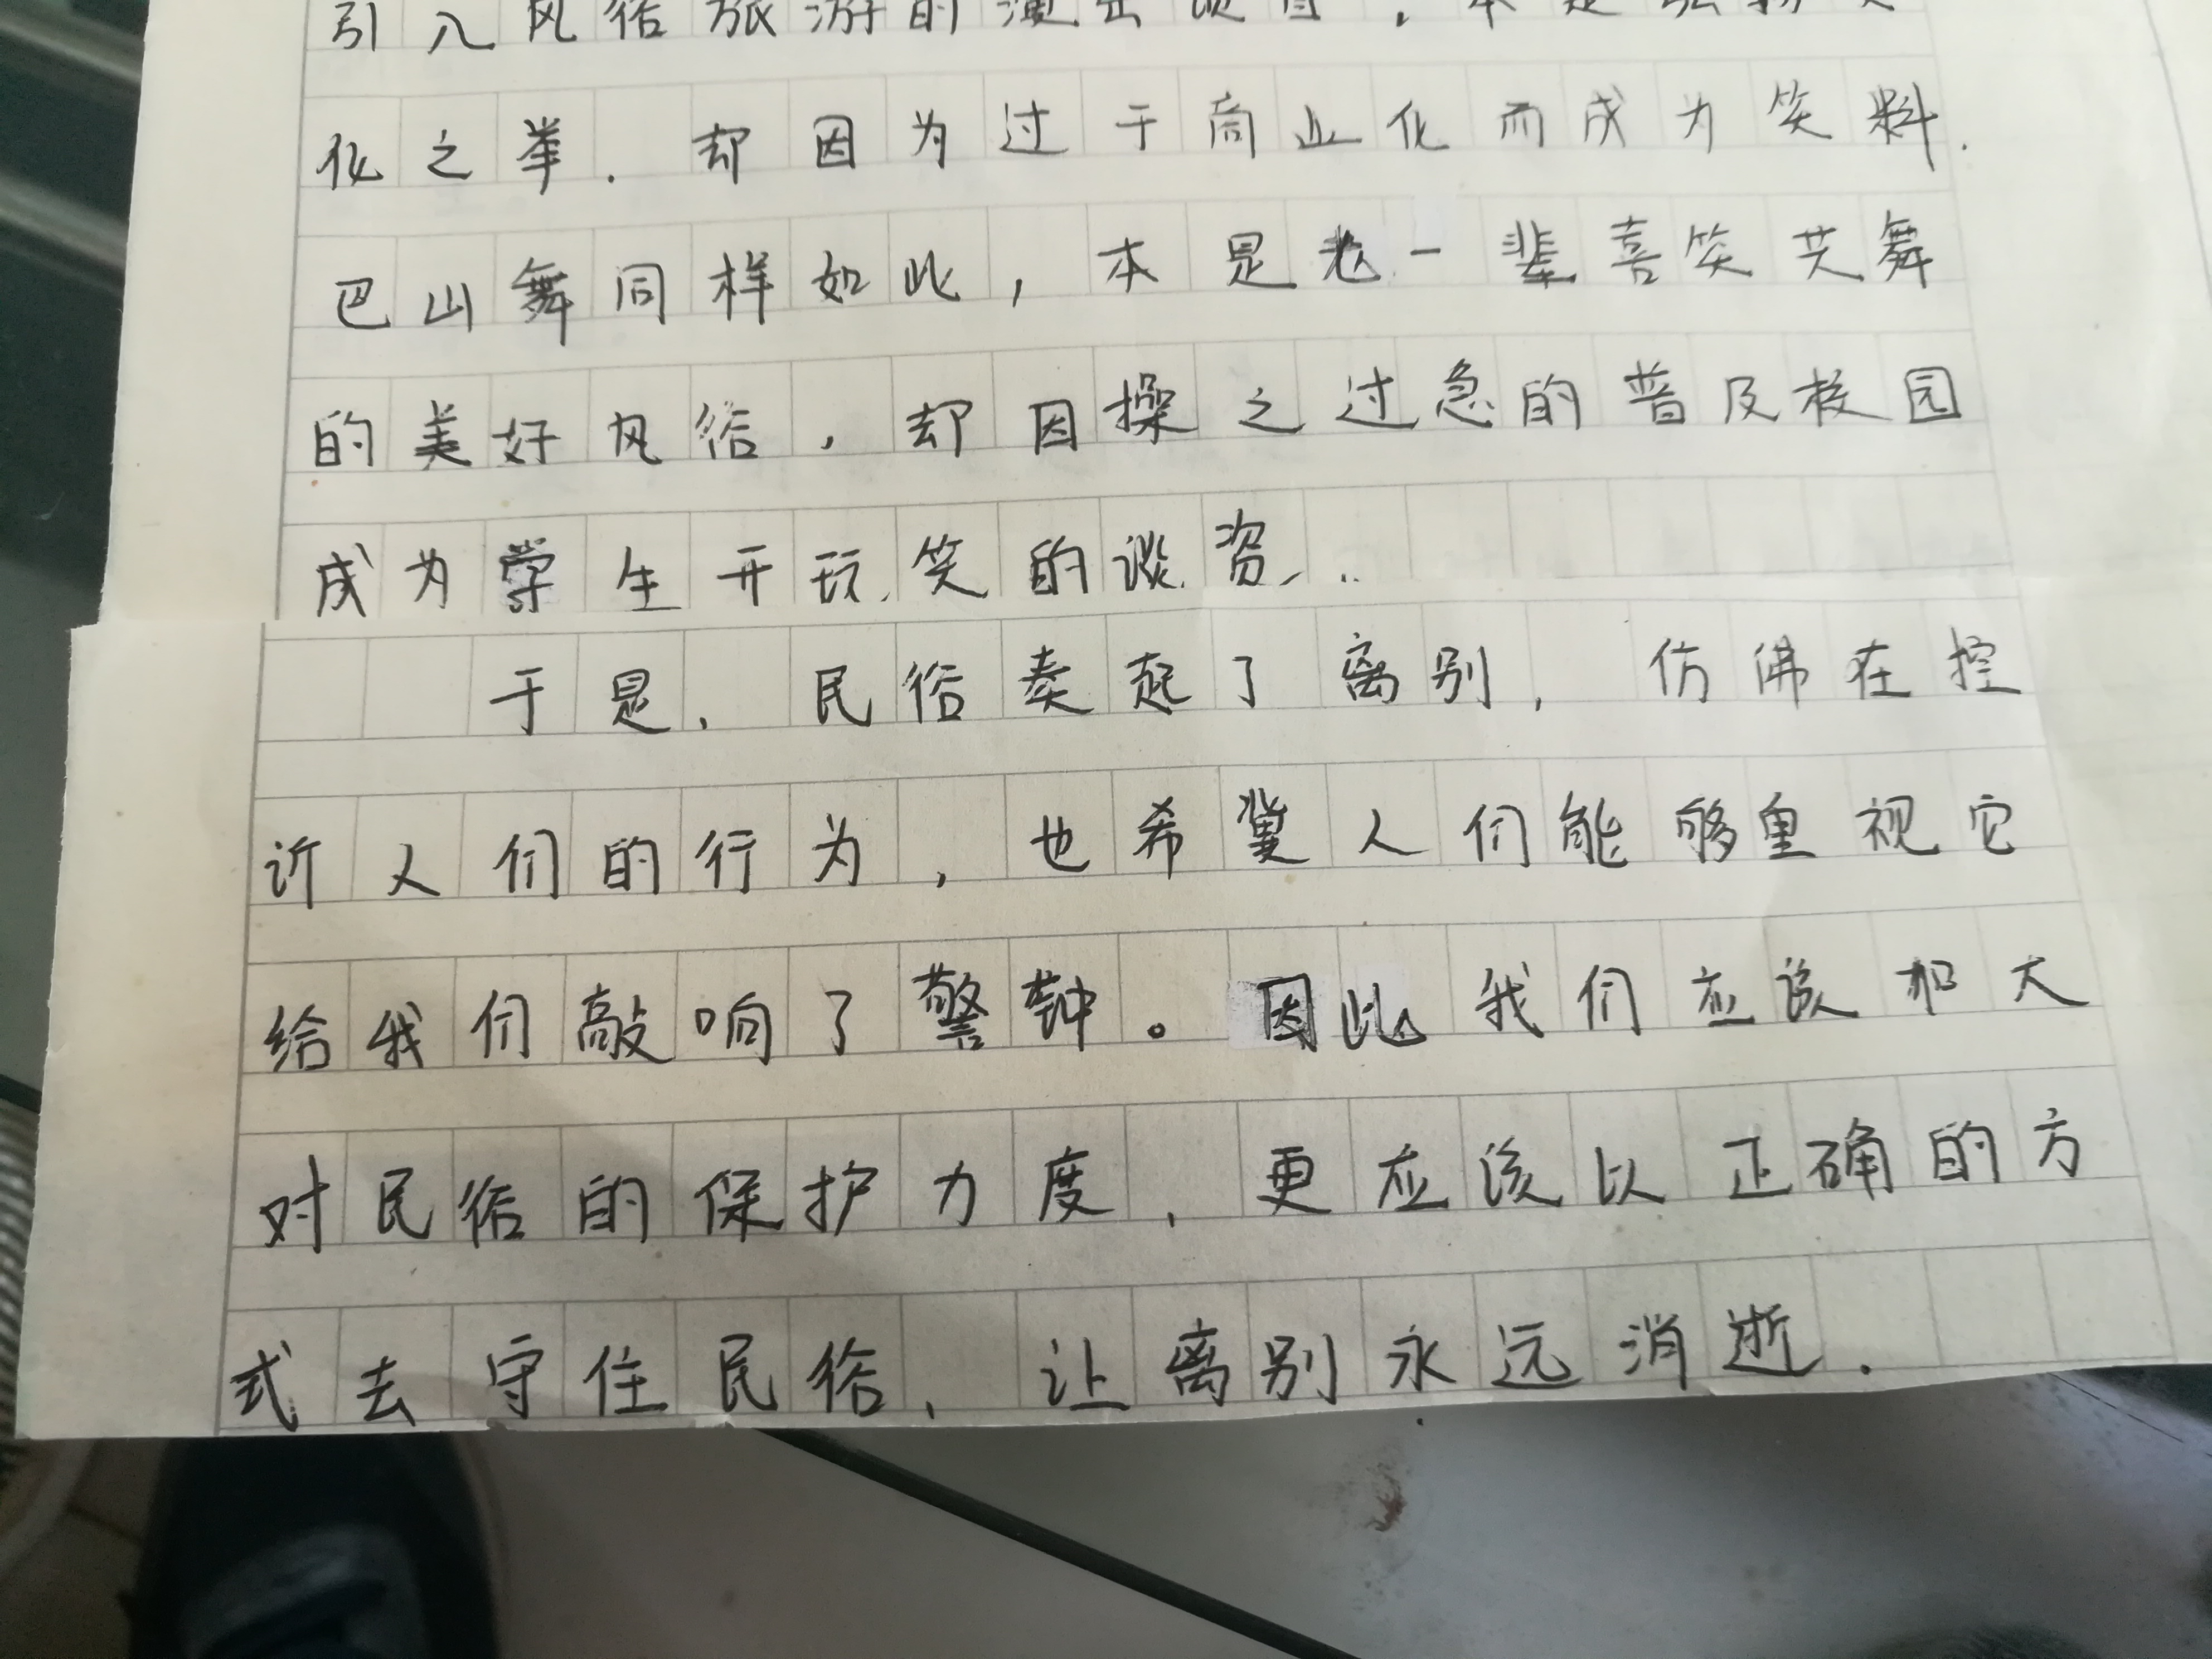 引入风俗旅游的演出项目，本是弘扬文
化之举．却因为过于商业化而成为笑料．
巴山舞同样如此，本是老一辈喜笑共舞
的美好风俗，却因操之过急的普及校园
成为学生开玩笑的谈资．．
于是，民俗奏起了离别，仿佛在控
诉人们的行为，也希冀人们能够重视它
给我们敲响了警钟。因此我们应该加大
对民俗的保护力度，更应该以正确的方
式去守住民俗，让离别永远消逝．